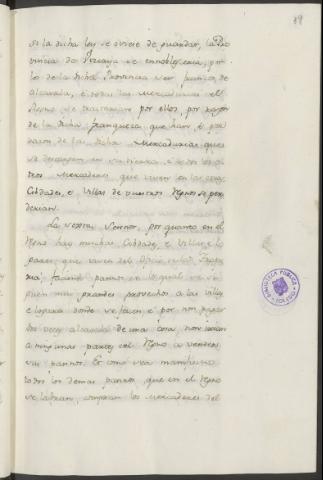 19
Si la dicha ley se oviese de guardar, la Pro
vincia de Vizcaya se ennobleceria, por
lo de la dicha Provincia ser franca de
alcavala, e todas las Mercadurias del
Reyno se tratarian por ellos, por razon
de la dicha franqueza que han, e por
de la dicha Mercadurias que
se descargan en su tierra, e todos los o
tros Mercaderes que viven en las otras
Cibdades, e Villas de vuestros Reynos se per
derian.
La sexta Señor, por quanto en el
Reyno hay muchas Cibdades, e Villas, e lo
gares que viven del Oficio de la Rope
ria, facen pannos en lo qual se si
guen muy grandes provechos a las villas
e logares donde se facen e por non pagar
dos veces alcavala de una cosa, non irian
a ningunas partes del Reyno a vender
sus pannos. Et como sea manifiesto
todos los demas pannos, que en el Reyno
se labran, compran los Mercaderes del
BIBLIOTECA PUBLICA
TOLEDO